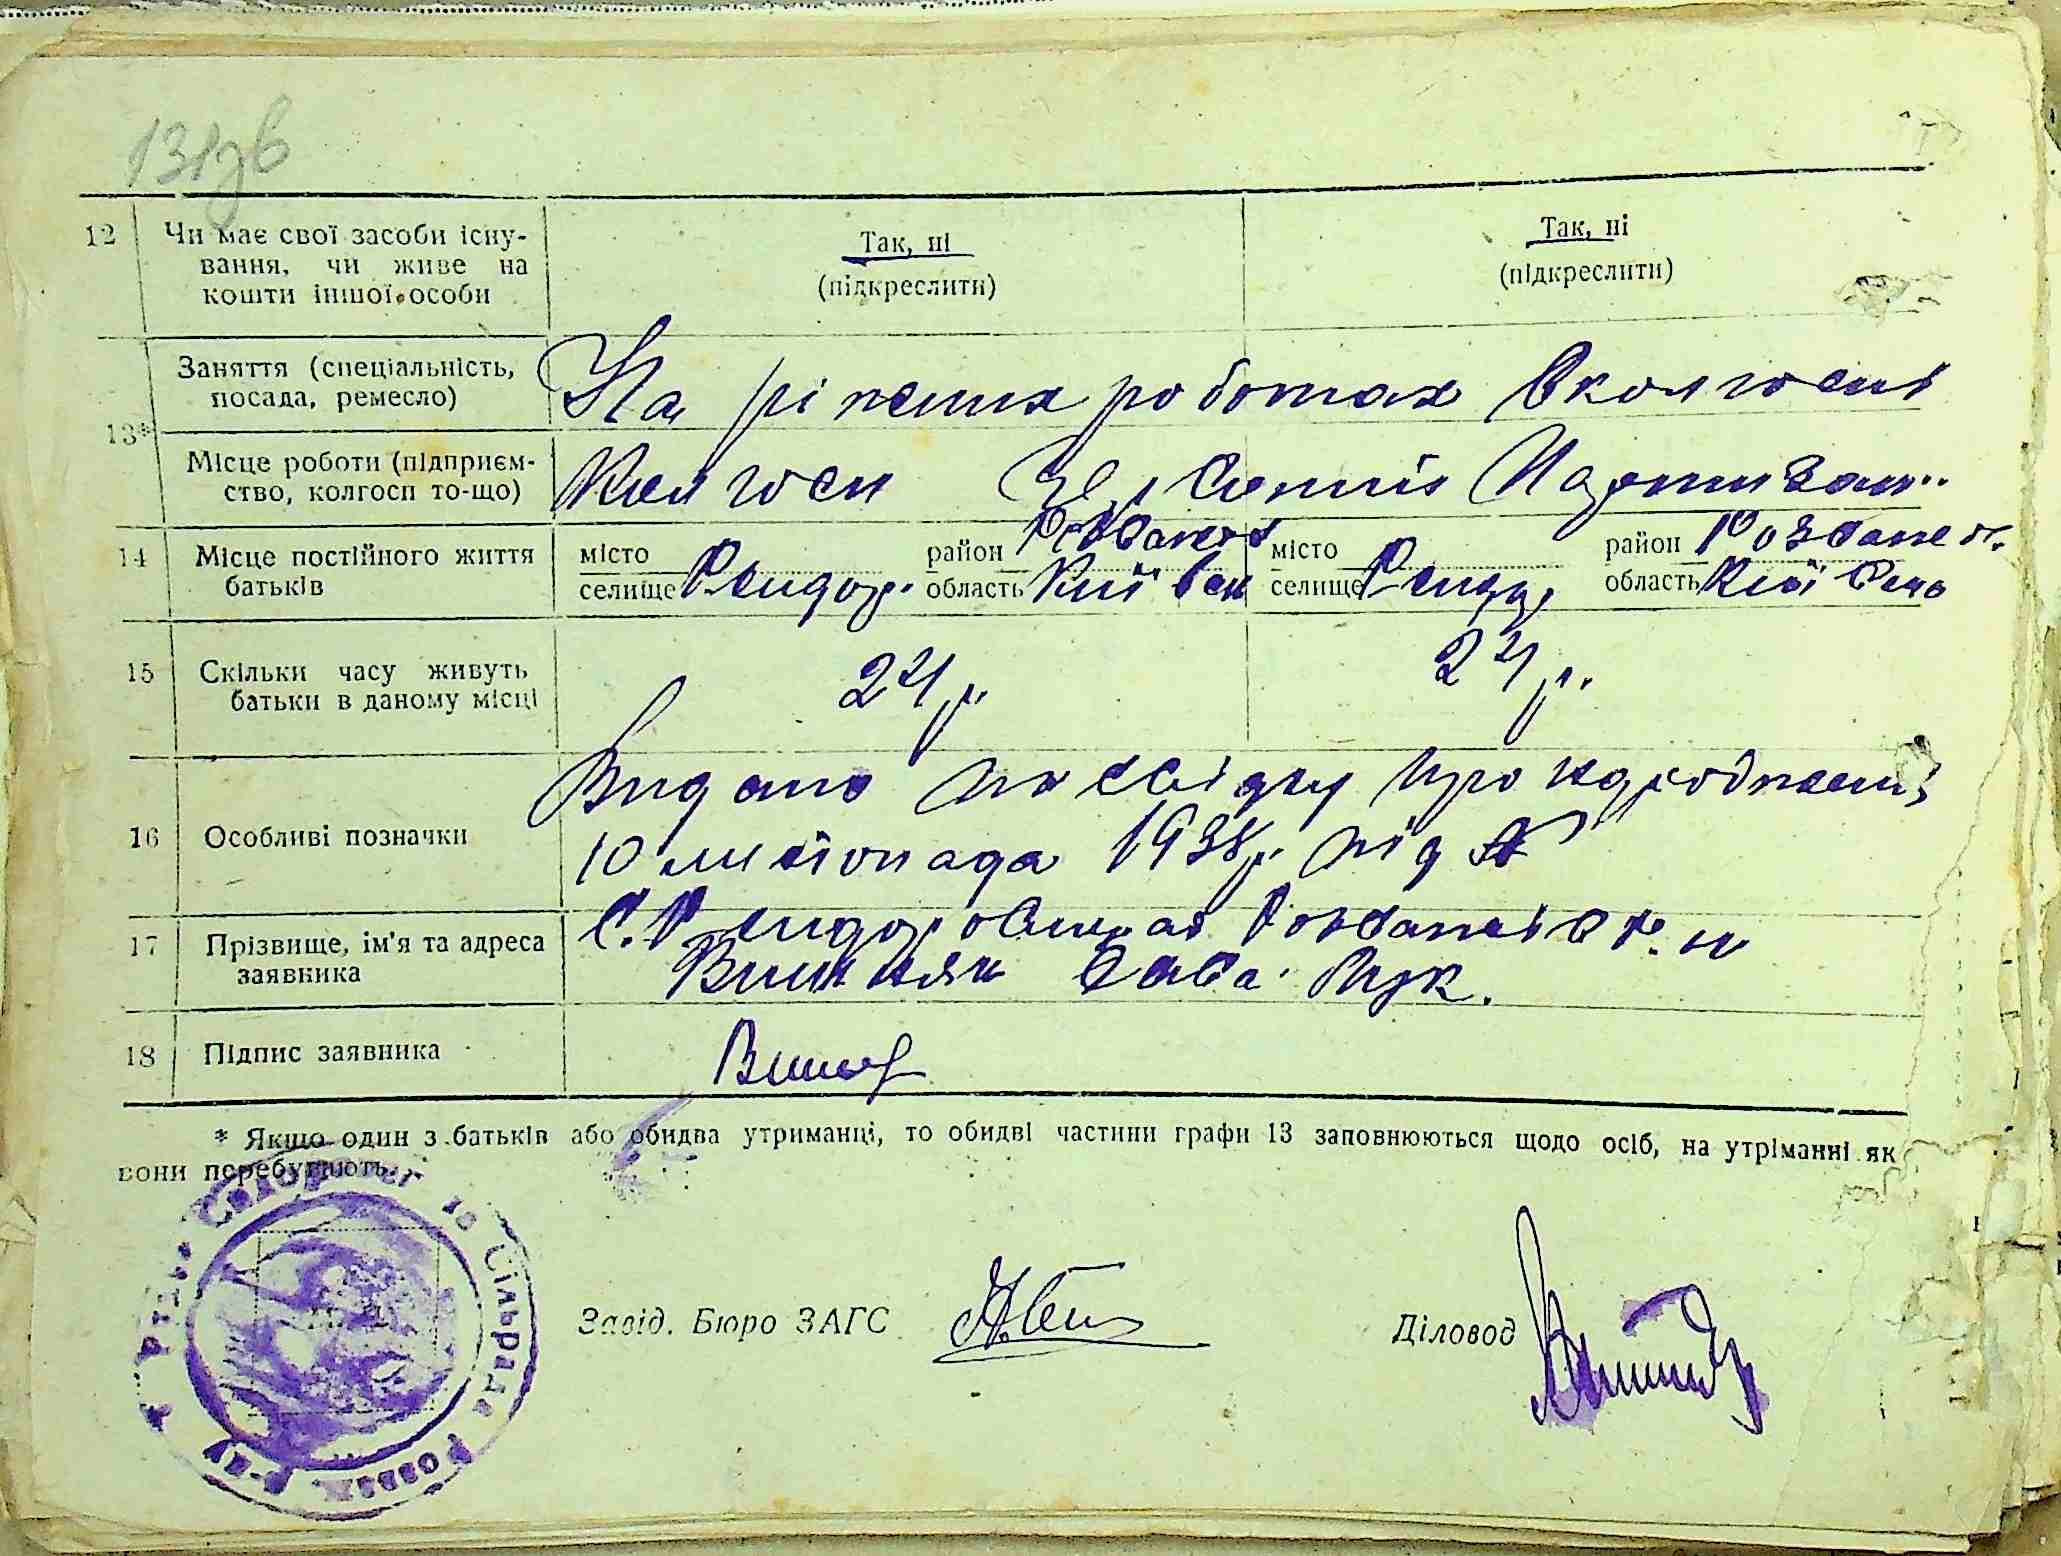 131зв
12 Чи має свої засоби існу-
вання, чи живе на
кошти іншої особи
Так, ні
(підкреслити)
Так, ні
(підкреслити)
13*
Заняття (спеціальність,
посада, ремесло)
На ріжних роботах в колгоспі
Місце роботи (підприєм-
ство, колгосп то-що)
Колгосп Партизан
14 Місце постійного життя
батьків
місто
селище
район
область Київськ
місто
селище
район Розважев.
область Київськ
15 Скільки часу живуть
батьки в даному місці
24 р.
24 р.
16 Особливі позначки
Видано посвідку про народження
10 листопада 1938 р. під №
17 Прізвище, ім'я та адреса
заявника
С. Розважівск. р-н
Вишняк Сава Лук.
18 Підпис заявника
* Якщо один з батьків або обидва утриманці, то обидві частини графи 13 заповнюються щодо осіб, на утріманні як
вони перебувають.
Сільрада Розваж. р-ну
Завід. Бюро ЗАГС
Діловод